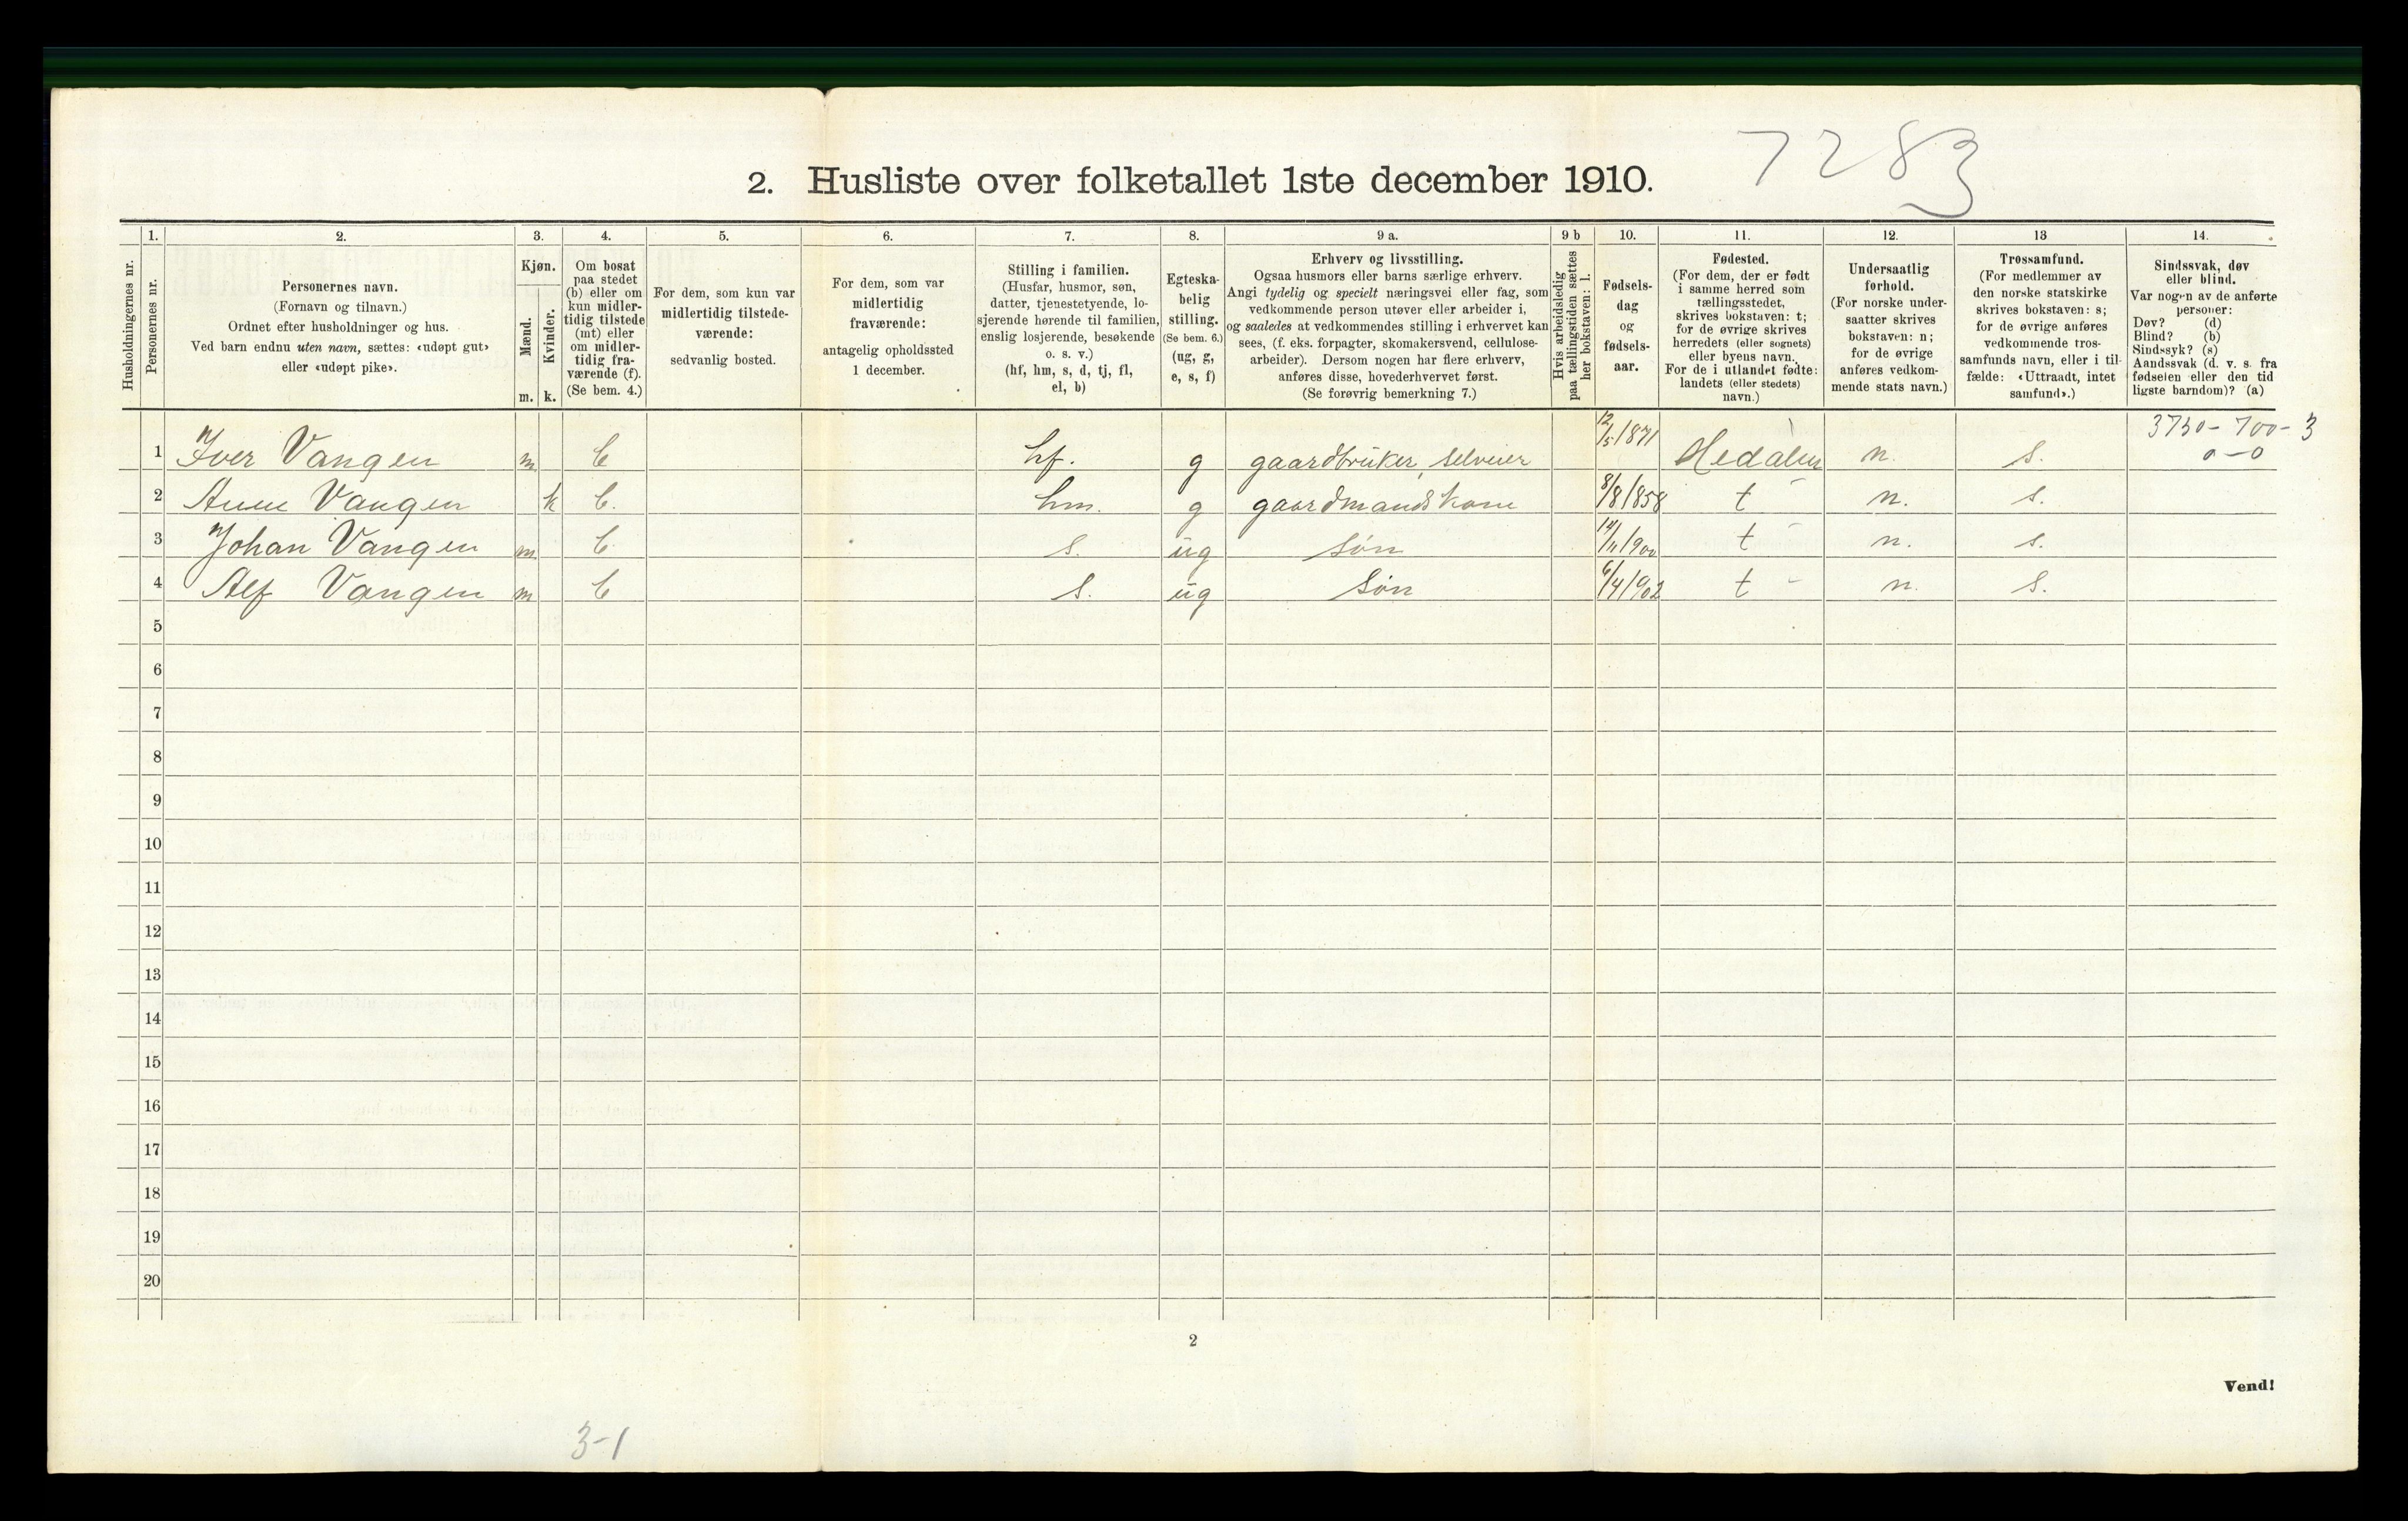 7283
2. Husliste over folketallet 1ste december 1910.
Husholdningernes nr.
1.
Personernes nr.
2.
Personernes navn.
(Fornavn og tilnavn.)
Ordnet efter husholdninger og hus.
Ved barn endnu uten navn, sættes: «udøpt gut»
eller «udøpt pike».
3.
Kjøn.
Mænd.
Kvinder.
m. k.
4.
Om bosat
paa stedet
(b) eller om
kun midler-
tidig tilstede
(mt) eller
om midler-
tidig fra-
værende (f).
(Se bem. 4.)
5.
For dem, som kun var
midlertidig tilstede-
værende:
sedvanlig bosted.
6.
For dem, som var
midlertidig
fraværende:
antagelig opholdssted
1 december.
7.
Stilling i familien.
(Husfar, husmor, søn,
datter, tjenestetyende, lo-
sjerende hørende til familien,
enslig losjerende, besøkende
o. s. v.)
(hf, hm, s, d, tj, fl,
el, b)
8.
Egteska-
belig
stilling.
(Se bem. 6.)
(ug, g,
e, s, f)
9 a.
Erhverv og livsstilling.
Ogsaa husmors eller barns særlige erhverv.
Angi tydelig og specielt næringsvei eller fag, som
vedkommende person utøver eller arbeider i,
og saaledes at vedkommendes stilling i erhvervet kan
sees, (f. eks. forpagter, skomakersvend, cellulose-
arbeider). Dersom nogen har flere erhverv,
anføres disse, hovederhvervet først.
(Se forøvrig bemerkning 7.)
9 b
Hvis arbeidsledig
paa tællingstiden sættes
her bokstaven: l.
10.
Fødsels-
dag
og
fødsels-
aar.
11.
Fødested.
(For dem, der er født
i samme herred som
tællingsstedet,
skrives bokstaven: t;
for de øvrige skrives
herredets (eller sognets)
eller byens navn.
For de i utlandet fødte:
landets (eller stedets)
navn.)
12.
Undersaatlig
forhold.
(For norske under-
saatter skrives
bokstaven: n;
for de øvrige
anføres vedkom-
mende stats navn.)
13
Trossamfund.
(For medlemmer av
den norske statskirke
skrives bokstaven: s;
for de øvrige anføres
vedkommende tros-
samfunds navn, eller i til-
fælde: «Uttraadt, intet
samfund».)
14.
Sindssvak, døv
eller blind.
Var nogen av de anførte
personer:
Døv? (d)
Blind? (b)
Sindssyk? (s)
Aandssvak (d. v. s. fra
fødselen eller den tid
ligste barndom)? (a)
3730- 700- 3
0-0
1 Iver Vangen m b hf. g gaardbruker, selveier 12/5 1871 Hedalen n. s.
2 Anne Vangen k b. hm. g gaardmandskone 8/8 1858 t n. s.
3 Johan Vangen m b s. ug søn 14/11 900 t n. s.
4 Alf Vangen m b s. ug søn 6/4 1902 t n. s.
5
6
7
8
9
10
11
12
13
14
15
16
17
18
19
20
2
Vend!
3-1